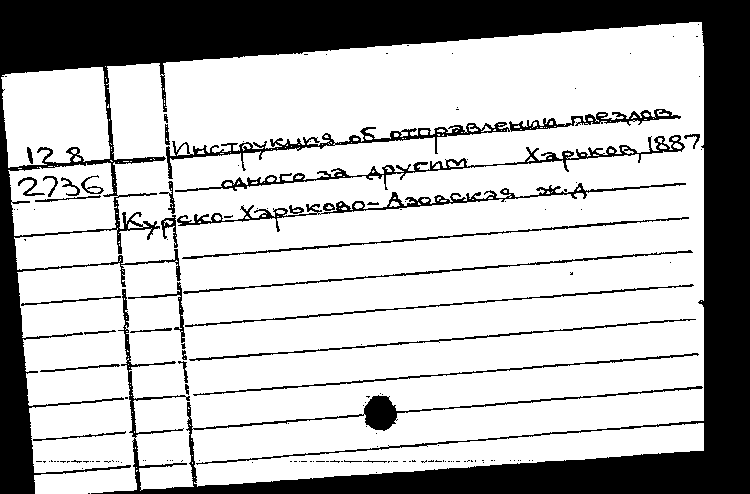 12 8 Инструкция об отправлении поездов
2736 одного за другим Харьков, 1887.
Курско-Харьково-Азовская ж.д.